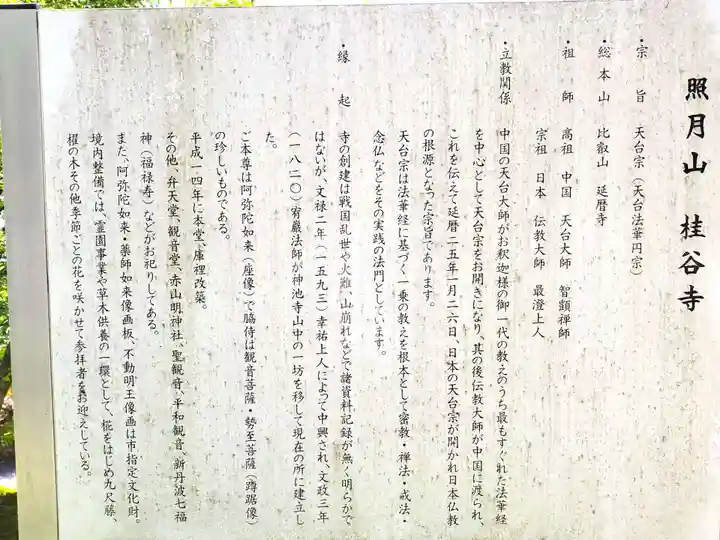 照月山 桂谷寺
・宗旨 天台宗（天台法華円宗）
・総本山 比叡山 延暦寺
・祖師 高祖 中国 天台大師 智顗禅師
宗祖 日本 伝教大師 最澄上人
・立教関係 中国の天台大師がお釈迦様の御一代の教えのうち最もすぐれた法華経
を中心として天台宗をお開きになり、其の後伝教大師が中国に渡られ、
これを伝えて延暦二五年一月二六日、日本の天台宗が開かれ日本仏教
の根源となった宗旨であります。
天台宗は法華経に基づく一乗の教えを根本として密教・禅法・戒法・
念仏などをその実践の法門としています。
・縁起 寺の創建は戦国乱世や火難、山崩れなどで諸資料記録が無く明らかで
はないが、文禄二年（一五九三）幸祐上人によって中興され、文政三年
（一八二〇）宥巌法師が神池寺山中の一坊を移して現在の所に建立し
た。
ご本尊は阿弥陀如来（座像）で脇侍は観音菩薩・勢至菩薩（蹲踞像）
の珍しいものである。
平成一四年に本堂、庫裡改築。
その他、弁天堂、観音堂、赤山明神社、聖観音、平和観音、新丹波七福
神（福禄寿）などがお祀りしてある。
また、阿弥陀如来・薬師如来像画板、不動明王像画は市指定文化財。
境内整備では、霊園事業や草木供養の一環として、椛をはじめ九尺藤、
櫂の木その他季節ごとの花を咲かせて参拝者をお迎えしている。